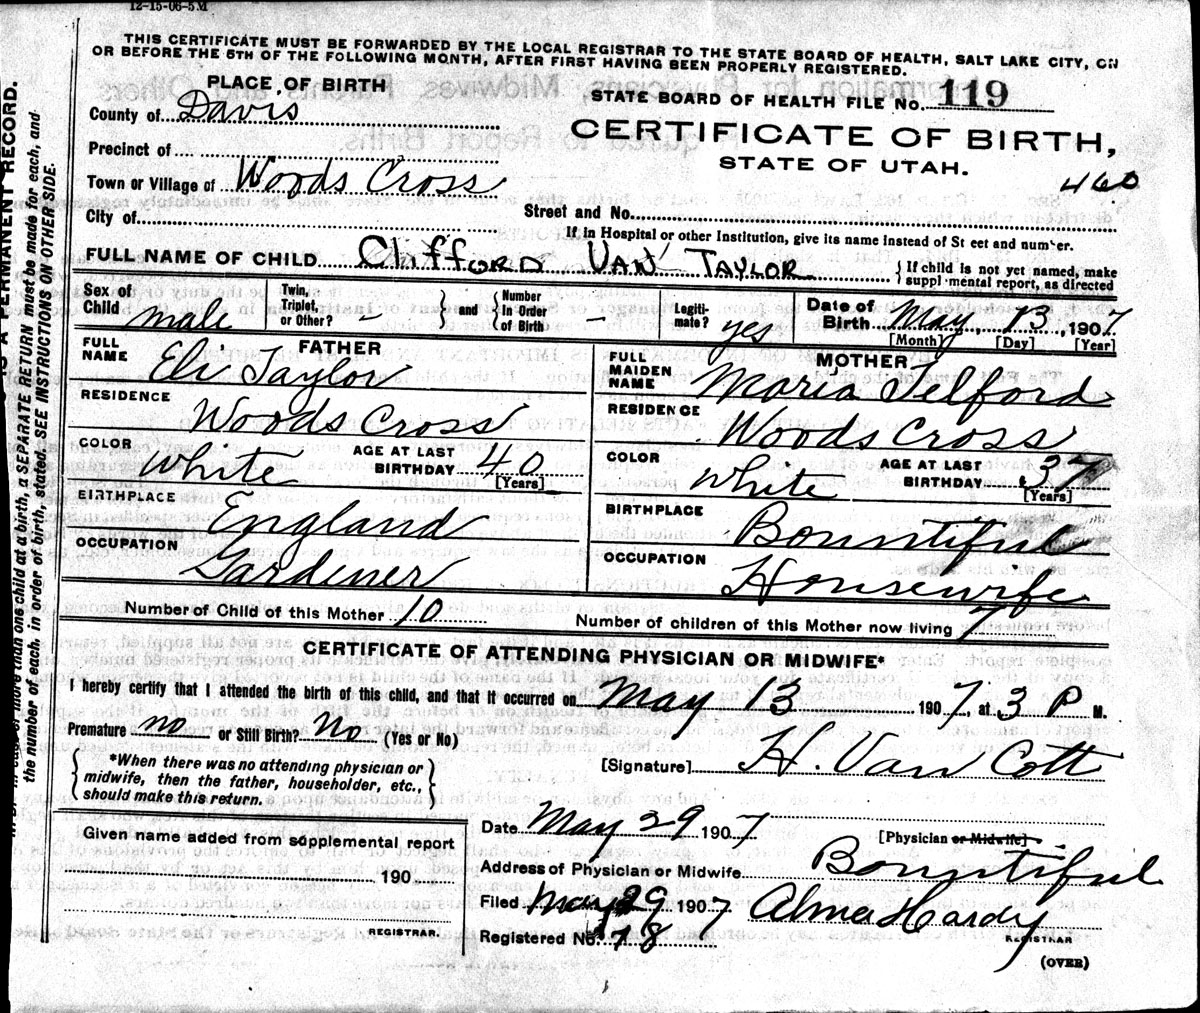 12-15-06-5M
THIS CERTIFICATE MUST BE FORWARDED BY THE LOCAL REGISTRAR TO THE STATE BOARD OF HEALTH, SALT LAKE CITY, ON
OR BEFORE THE 5TH OF THE FOLLOWING MONTH, AFTER FIRST HAVING BEEN PROPERLY REGISTERED.
PLACE OF BIRTH
STATE BOARD OF HEALTH FILE No. 119
County of Davis
CERTIFICATE OF BIRTH,
Precinct of
STATE OF UTAH.
Town or Village of Woods Cross
460
City of
Street and No.
If in Hospital or other Institution, give its name instead of St eet and number.
FULL NAME OF CHILD Clifford Van Taylor { If child is not yet named, make
suppl mental report, as directed
Sex of Child male
Twin, Triplet, or Other? } and { Number In Order of Birth }
Legiti- mate? yes
Date of Birth May 13, 1907
[Month] [Day] [Year]
FATHER
FULL NAME Eli Taylor
RESIDENCE Woods Cross
COLOR White AGE AT LAST BIRTHDAY 40
[Years]
BIRTHPLACE England
OCCUPATION Gardener
MOTHER
FULL MAIDEN NAME Maria Telford
RESIDENCE Woods Cross
COLOR White AGE AT LAST BIRTHDAY 37
[Years]
BIRTHPLACE Bountiful
OCCUPATION Housewife
Number of Child of this Mother 10 Number of children of this Mother now living 7
CERTIFICATE OF ATTENDING PHYSICIAN OR MIDWIFE*
I hereby certify that I attended the birth of this child, and that it occurred on May 13 1907, at 3 P M.
Premature no or Still Birth? No (Yes or No)
{ *When there was no attending physician or
midwife, then the father, householder, etc.,
should make this return. }
[Signature] H. Van Cott
Given name added from supplemental report
190
REGISTRAR.
Date May 29 1907 [Physician or Midwife]
Address of Physician or Midwife Bountiful
Filed May 29 1907 Alma Hardy
Registered No. 78 REGISTRAR
(OVER)
A PERMANENT RECORD.
more than one child at a birth, a SEPARATE RETURN must be made for each, and
the number of each, in order of birth, stated. SEE INSTRUCTIONS ON OTHER SIDE.